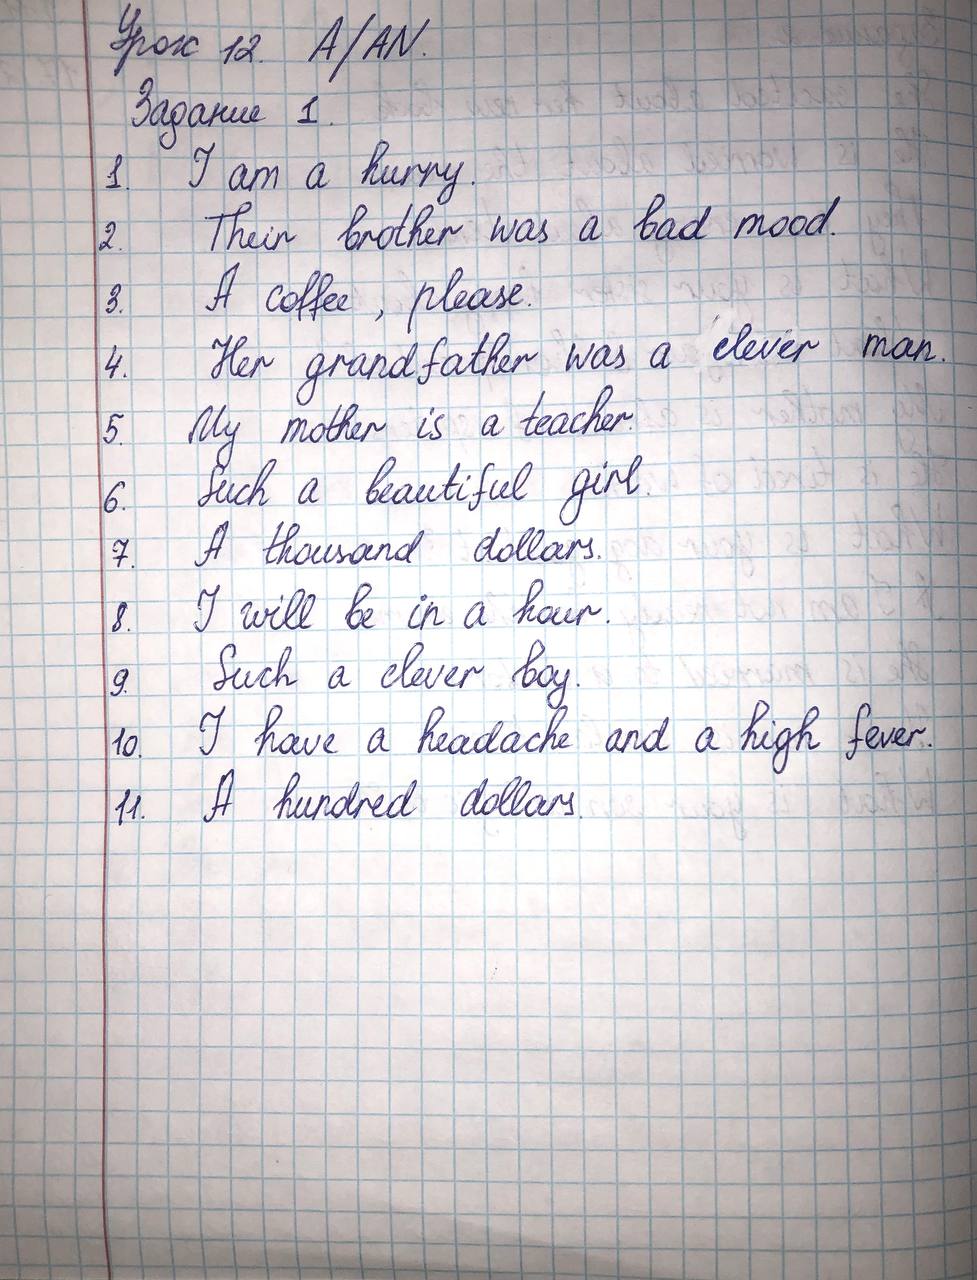 Урок 12. A/AN.
Задание 1.
1. I am a hurry.
2. Their brother was a bad mood.
3. A coffee, please.
4. Her grandfather was a clever man.
5. My mother is a teacher.
6. Such a beautiful girl.
7. A thousand dollars.
8. I will be in a hour.
9. Such a clever boy.
10. I have a headache and a high fever.
11. A hundred dollars.